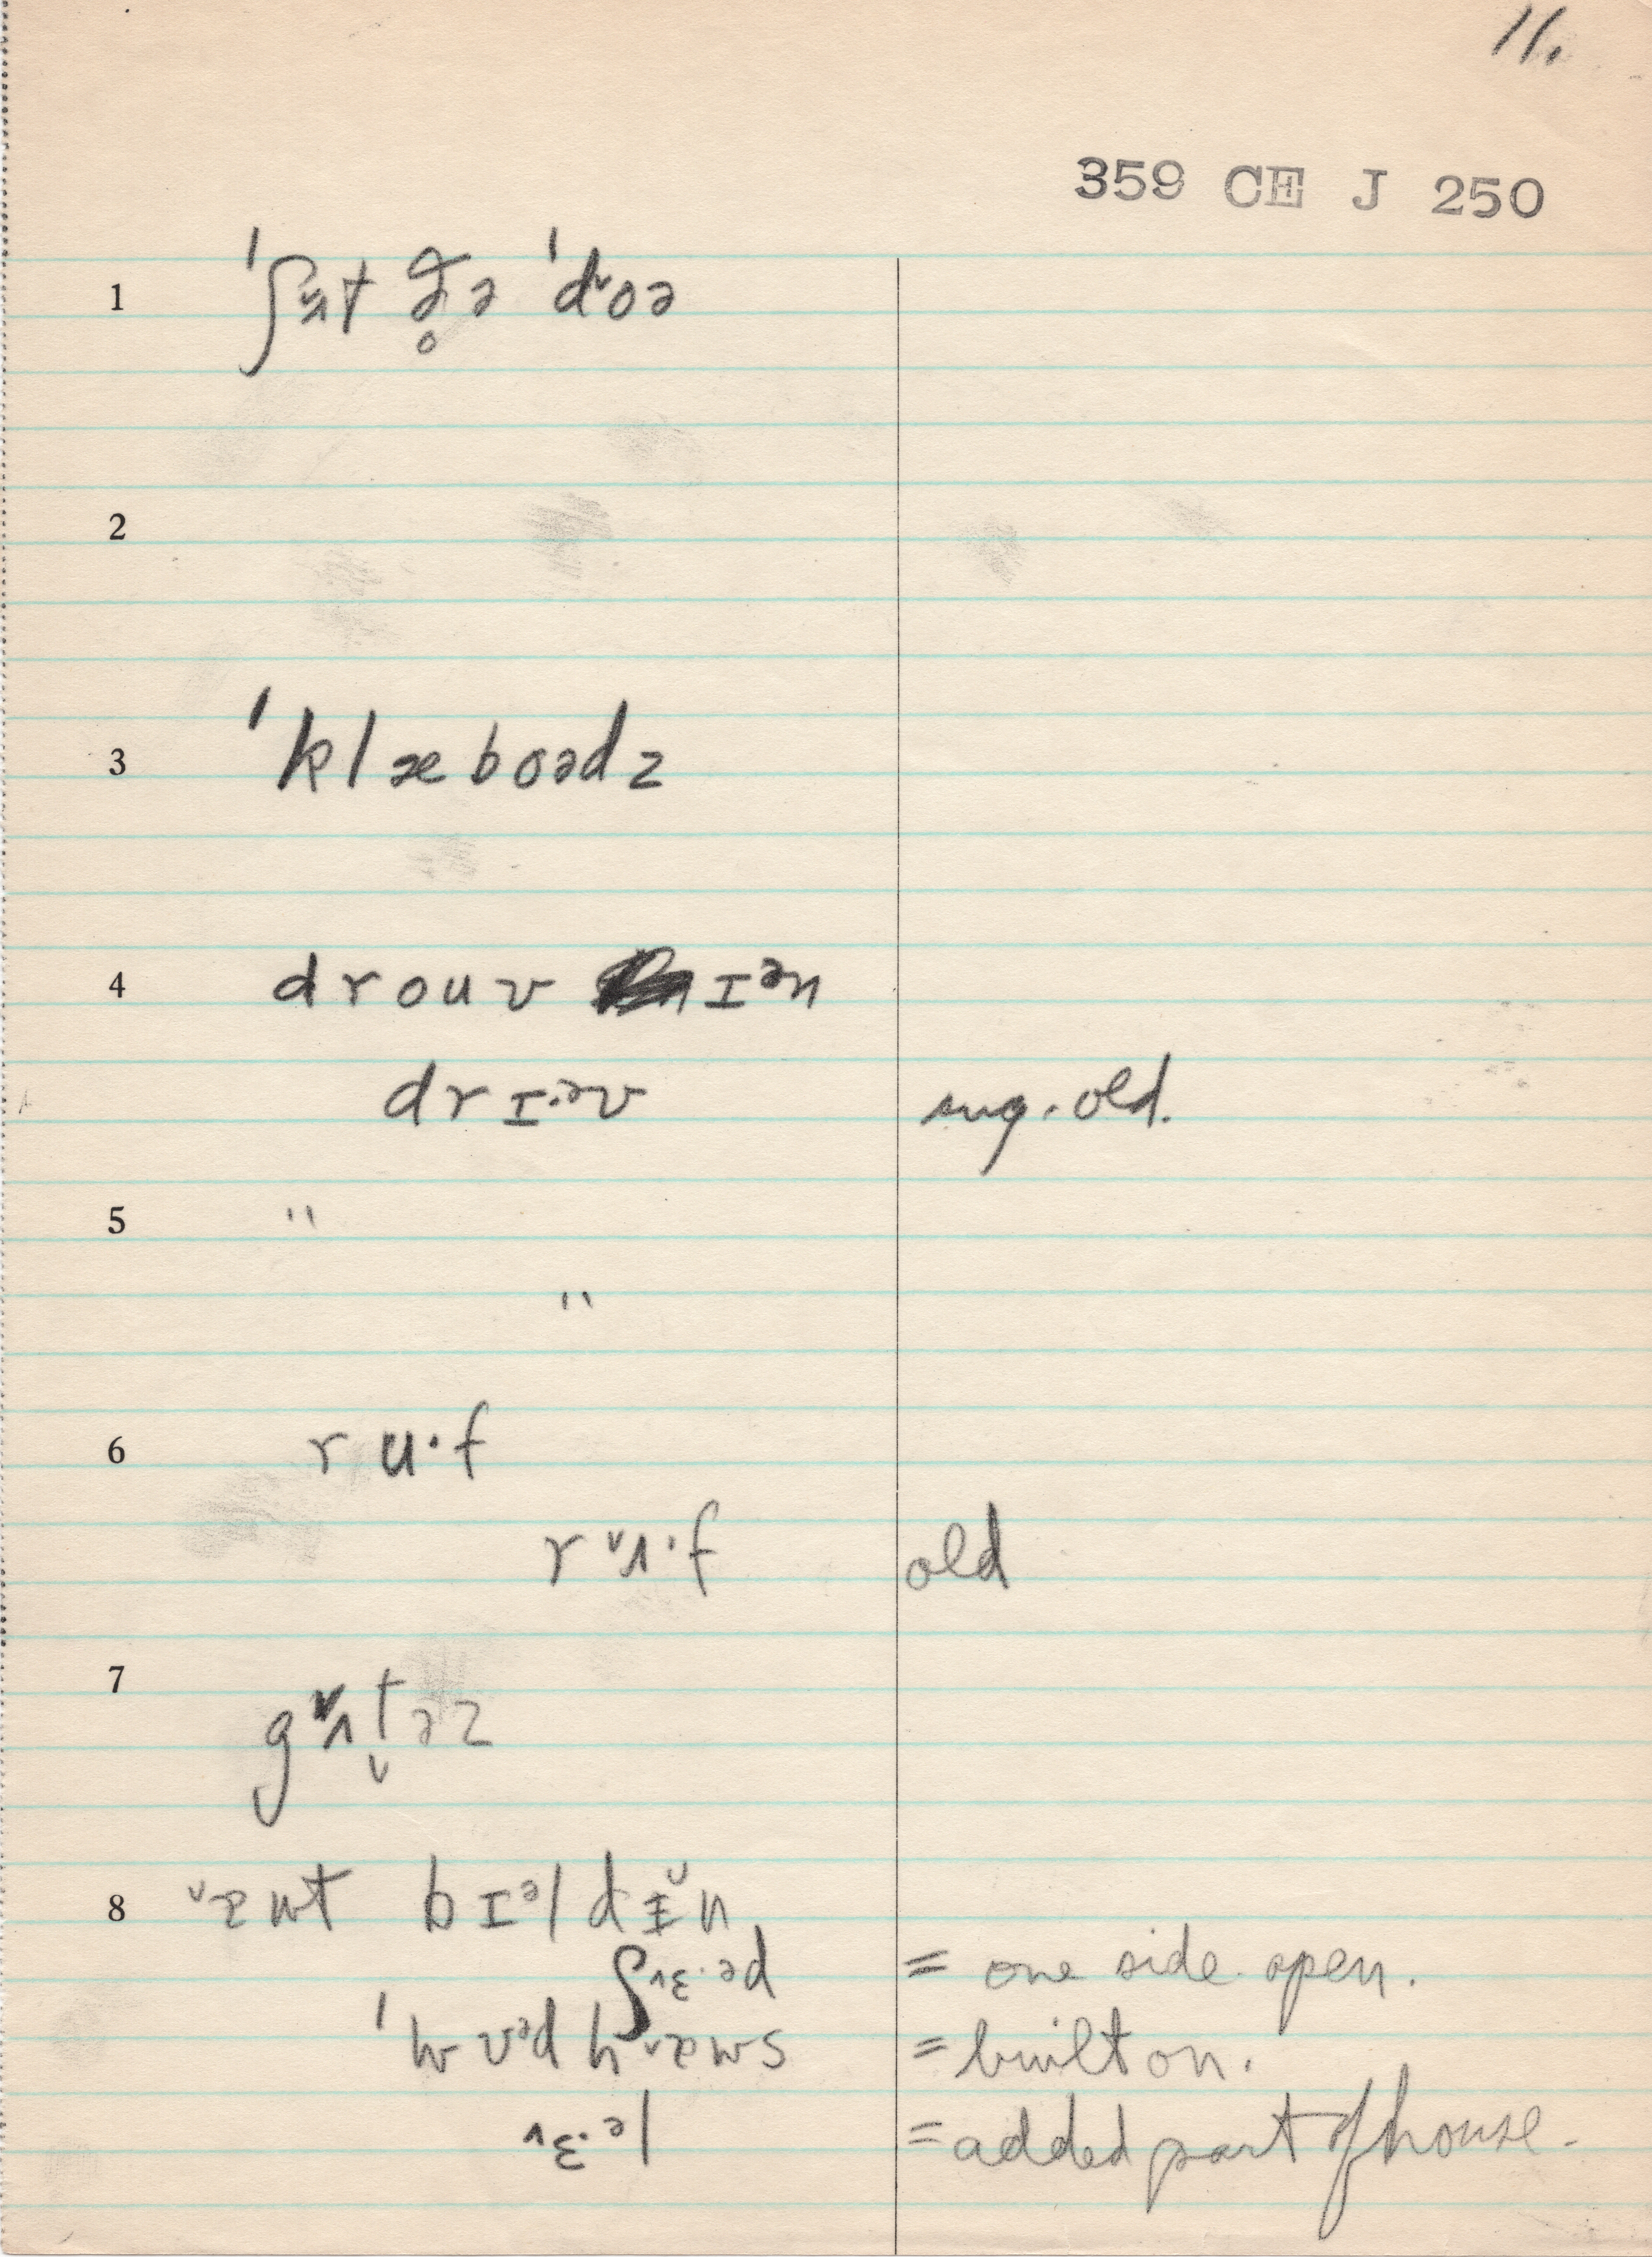 11.
359 CE J 250
1 ˈʃʌt ðə ˈdoə
2
3 ˈklæboədz
4 drouv ɪən
drɪ·əv sug. old.
5 "
"
6 ru·f
rʌ·f old
7 gʌt̬əz
8 æut bɪəldɪ̆n
ʃɛ·əd = one side open.
ˈwʊədhæus = built on.
ɛ·əl = added part of house.